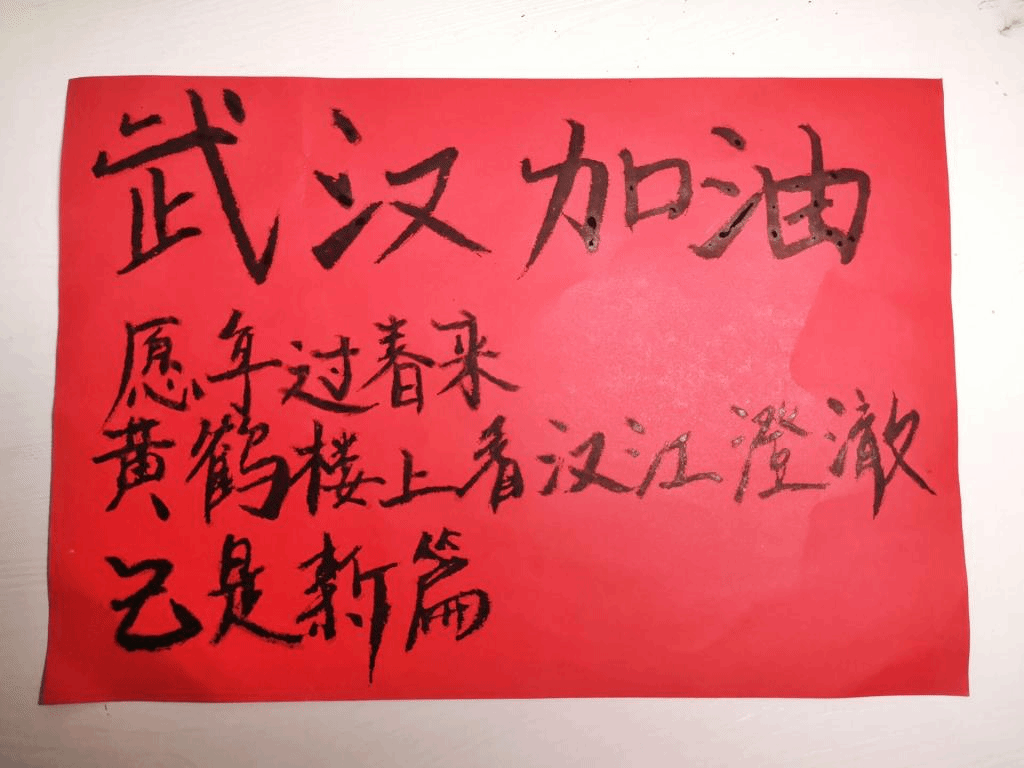 武汉加油
愿年过春来
黄鹤楼上看汉江澄澈
已是新篇